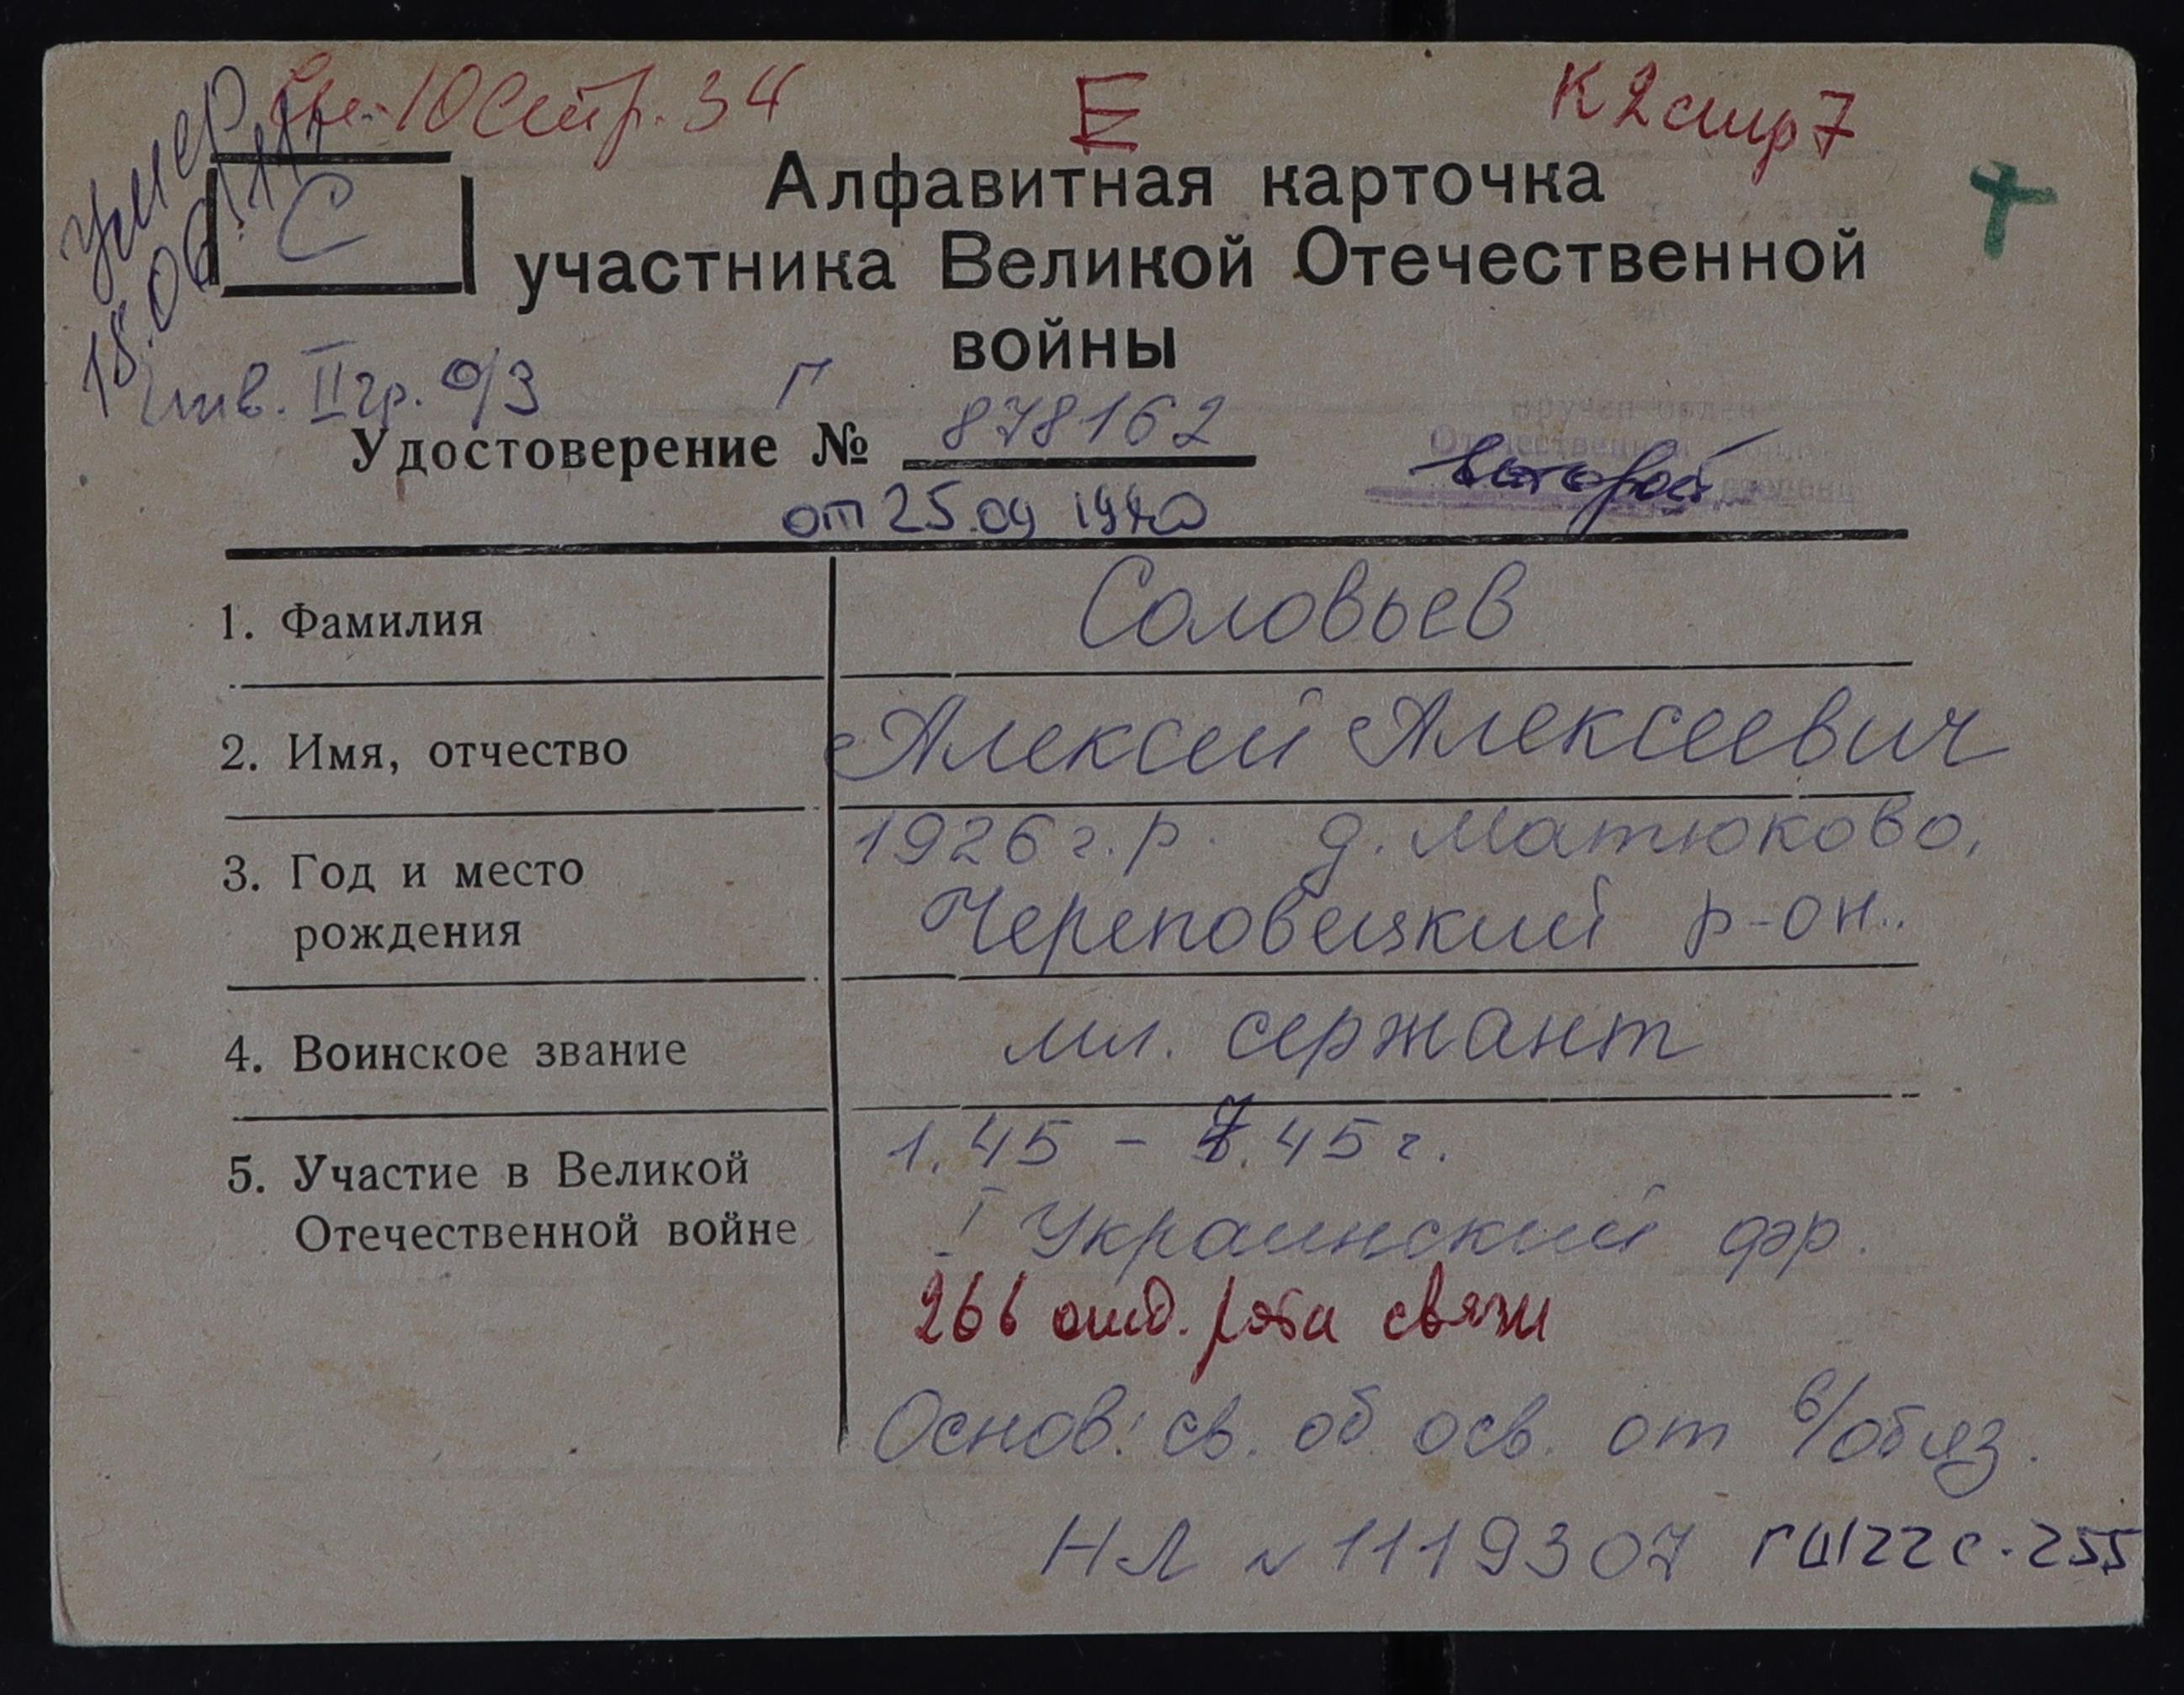 Умер
Сп-10 Стр. 34
Е
К 2 стр 7
С
Алфавитная карточка
участника Великой Отечественной
войны
Инв. II гр. о/з
Г
Удостоверение № 878162
второй
от 25.09 1980
1. Фамилия Соловьев
2. Имя, отчество Алексей Алексеевич
3. Год и место 1926 г.р. д. Матюково,
рождения Череповецкий р-он.
4. Воинское звание мл. сержант
5. Участие в Великой 1.45 - 7.45 г.
Отечественной войне I Украинский фр.
266 отд. рота связи
Основ: св. об осв. от в/обяз.
НЛ № 1119307 ГШ 22 с. 255